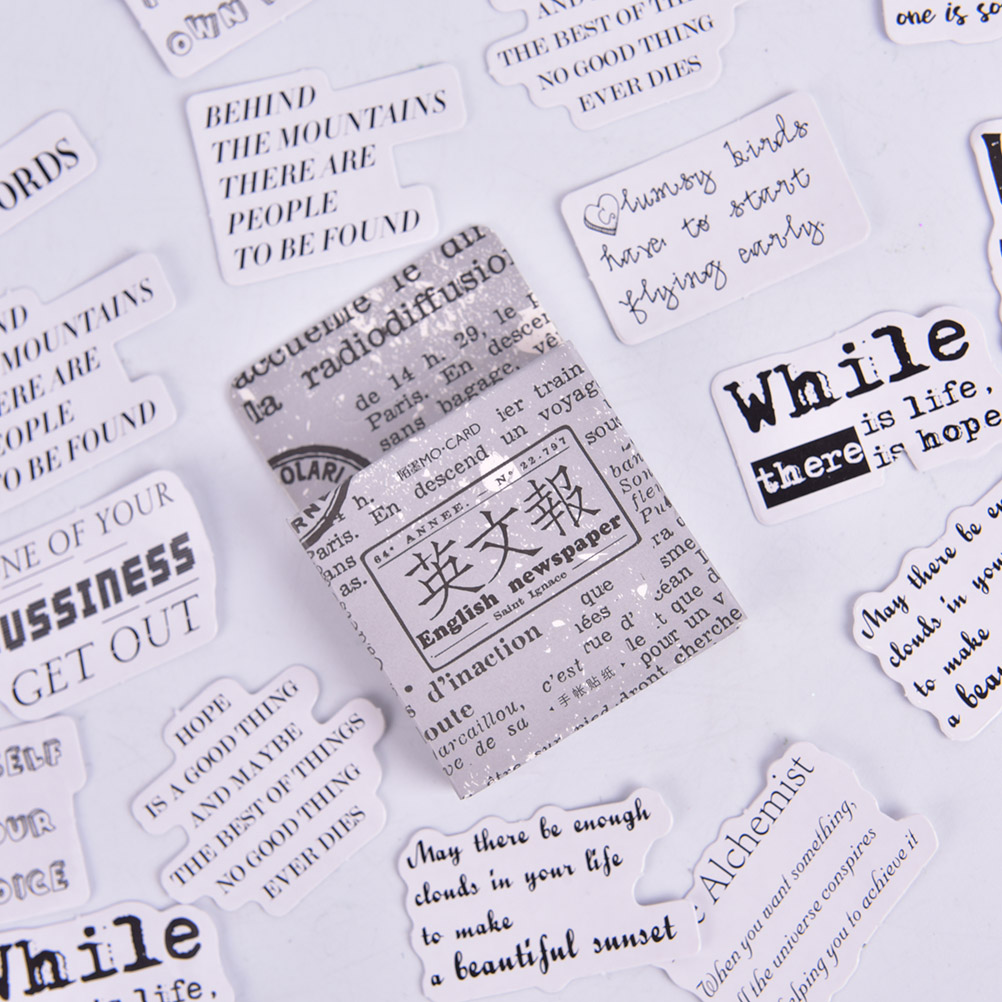 OWN
AND
THE BEST OF TH
NO GOOD THING
EVER DIES
one is so
BEHIND
THE MOUNTAINS
THERE ARE
PEOPLE
TO BE FOUND
ORDS
lumsy birds
have to start
flying early.
ND
MOUNTAINS
ERE ARE
EOPLE
O BE FOUND
accueille le du
la radiodiffusio
de 14 h. 29, le
Paris. En descen
sans
bagage.
OLARI
While
there is life,
is hope
陌墨MO·CARD
ier train
un voyag
h. descend
En
Paris.
ans
as.
64e ANNEE. N° 22.797
英文報
English newspaper
Saint Ignace
sou
ban
Son
fle
Pu
ra.
sme
éan d
t que
que
iées
rue d'
le
pour un v
d'inaction
c'est
cherche
手帐贴纸
oute
arcaillou,
ve de sa
NE OF YOUR
USSINESS
GET OUT
May there be en
clouds in you
to make
a beau
HOPE
IS A GOOD THING
AND MAYBE
THE BEST OF THINGS
NO GOOD THING
EVER DIES
ELF
OUR
OICE
May there be enough
clouds in your life
to make
a beautiful sunset
Alchemist
When you want something,
ll the universe conspires
lping you to achieve it
While
is life,